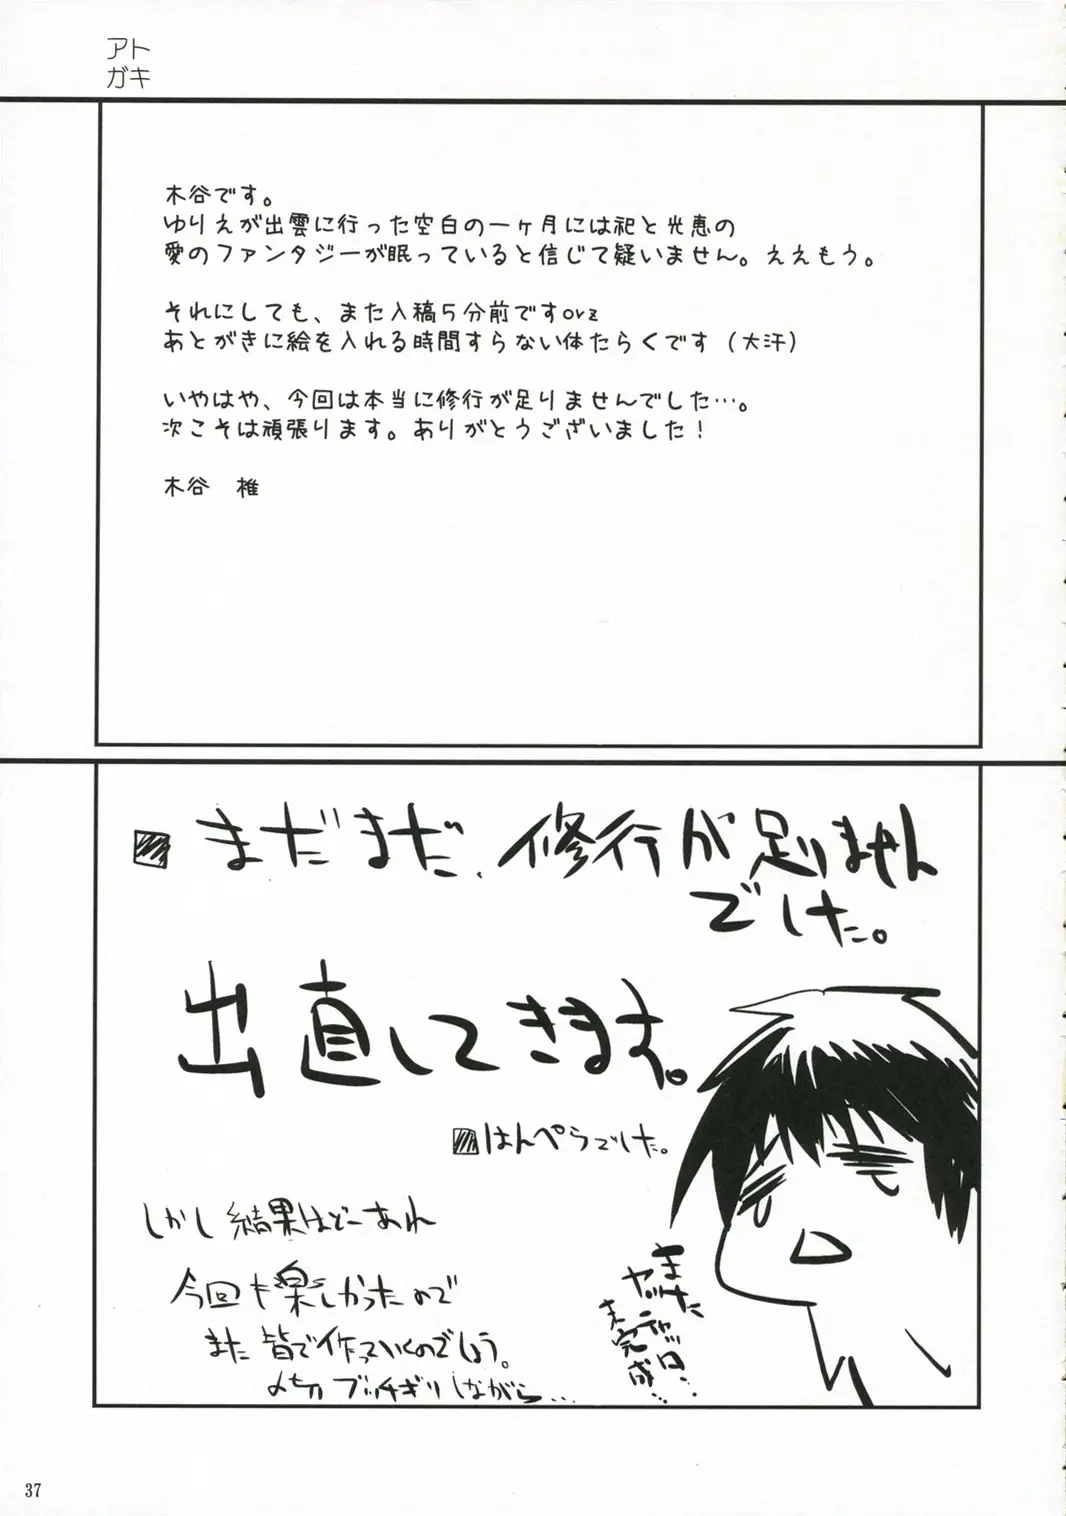 アト
ガキ
木谷です。
ゆりえが出雲に行った空白の一ヶ月には祀と光恵の
愛のファンタジーが眠っていると信じて疑いません。ええもう。
それにしても、また入稿5分前ですorz
あとがきに絵を入れる時間すらない体たらくです（大汗）
いやはや、今回は本当に修行が足りませんでした…。
次こそは頑張ります。ありがとうございました！
木谷　椎
まだまだ、修行が足りません
でした。
出直してきます。
はんぺらでした。
しかし結果はどーあれ
今回も楽しかったので
また皆で作っていくのでしょう。
〆切ブッチギリしながら…
また
ヤッた
ティッロ
未完成…
37